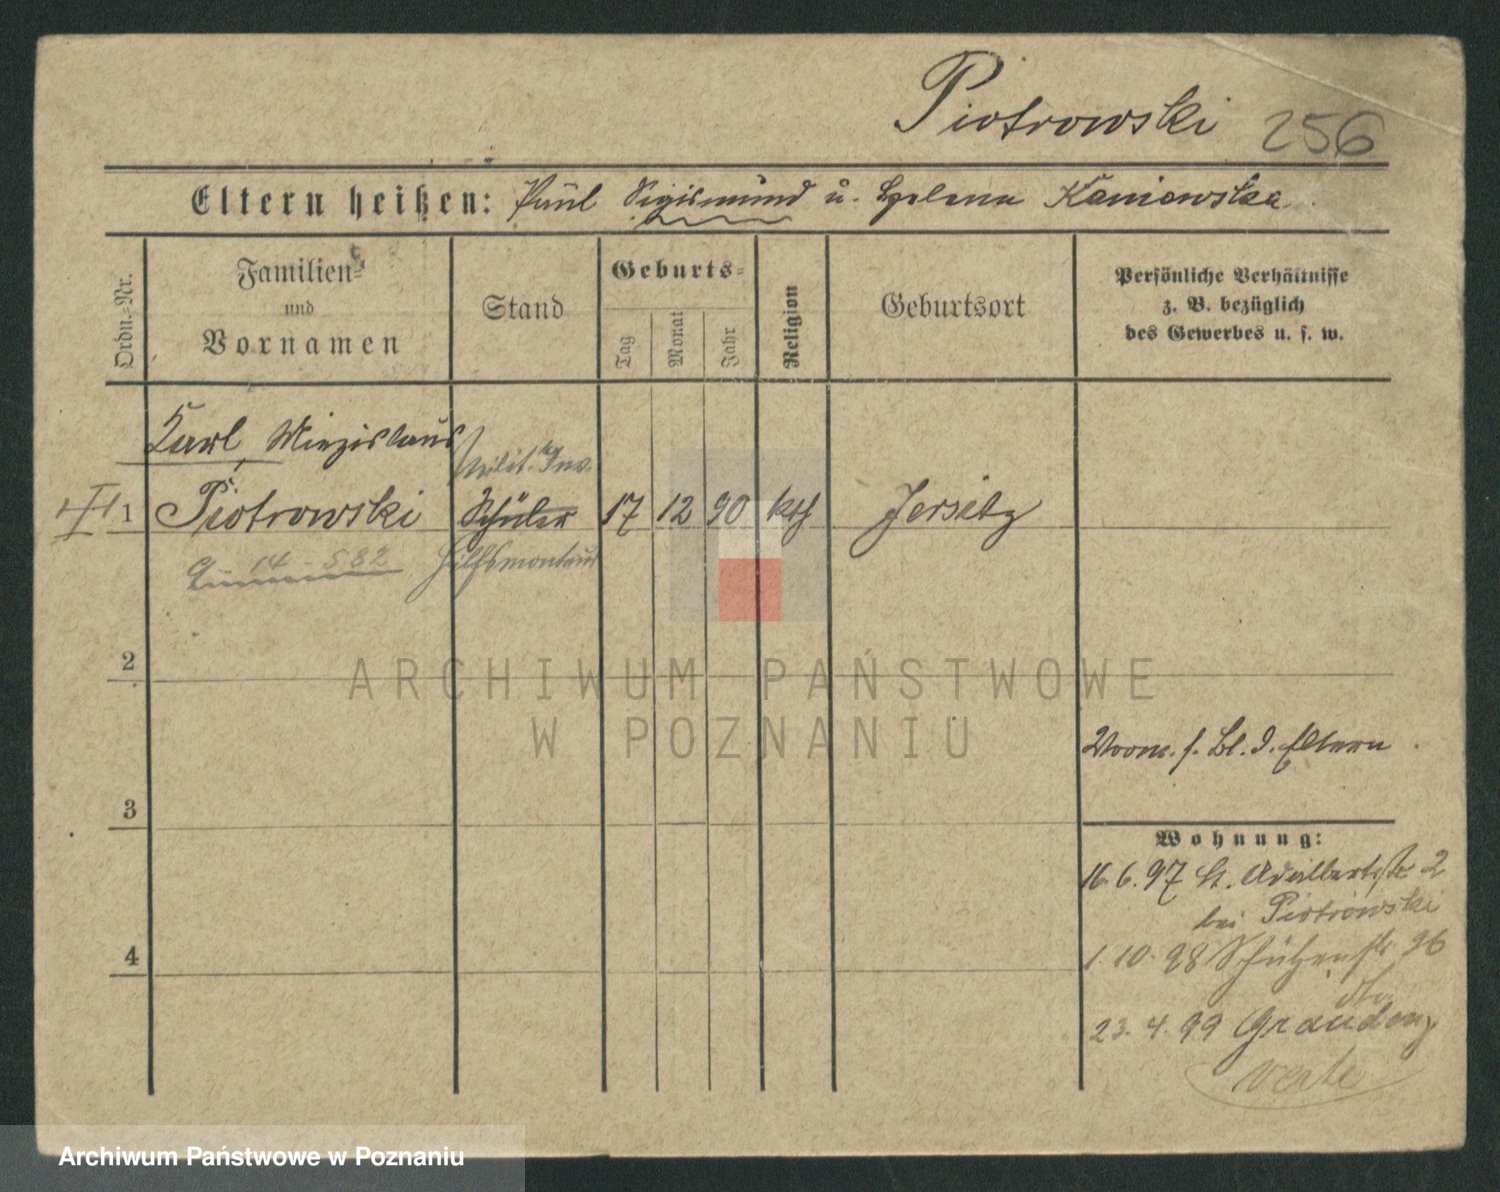 Piotrowski 256
Eltern heißen: Paul Sigismund u. Helena Kaniewska
Ordn.-Nr.
Familien-
und
Vornamen
Stand
Geburts-
Tag
Monat
Jahr
Religion
Geburtsort
Persönliche Verhältnisse
z. B. bezüglich
des Gewerbes u. s. w.
Karl, Miezislaus
Milit. Inv.
II 1 Piotrowski Schüler 17 12 90 kth Jersitz
14 - 582
Hilfsmonteur
2
ARCHIWUM PAŃSTWOWE
W POZNANIU
Vorm. s. Bl. d. Eltern
3
Wohnung:
16.6.97 St. Adalbertstr 2
bei Piotrowski
4
1.10.98 Schützenstr 26
dto
23.4.99 Graudenz
verte
Archiwum Państwowe w Poznaniu